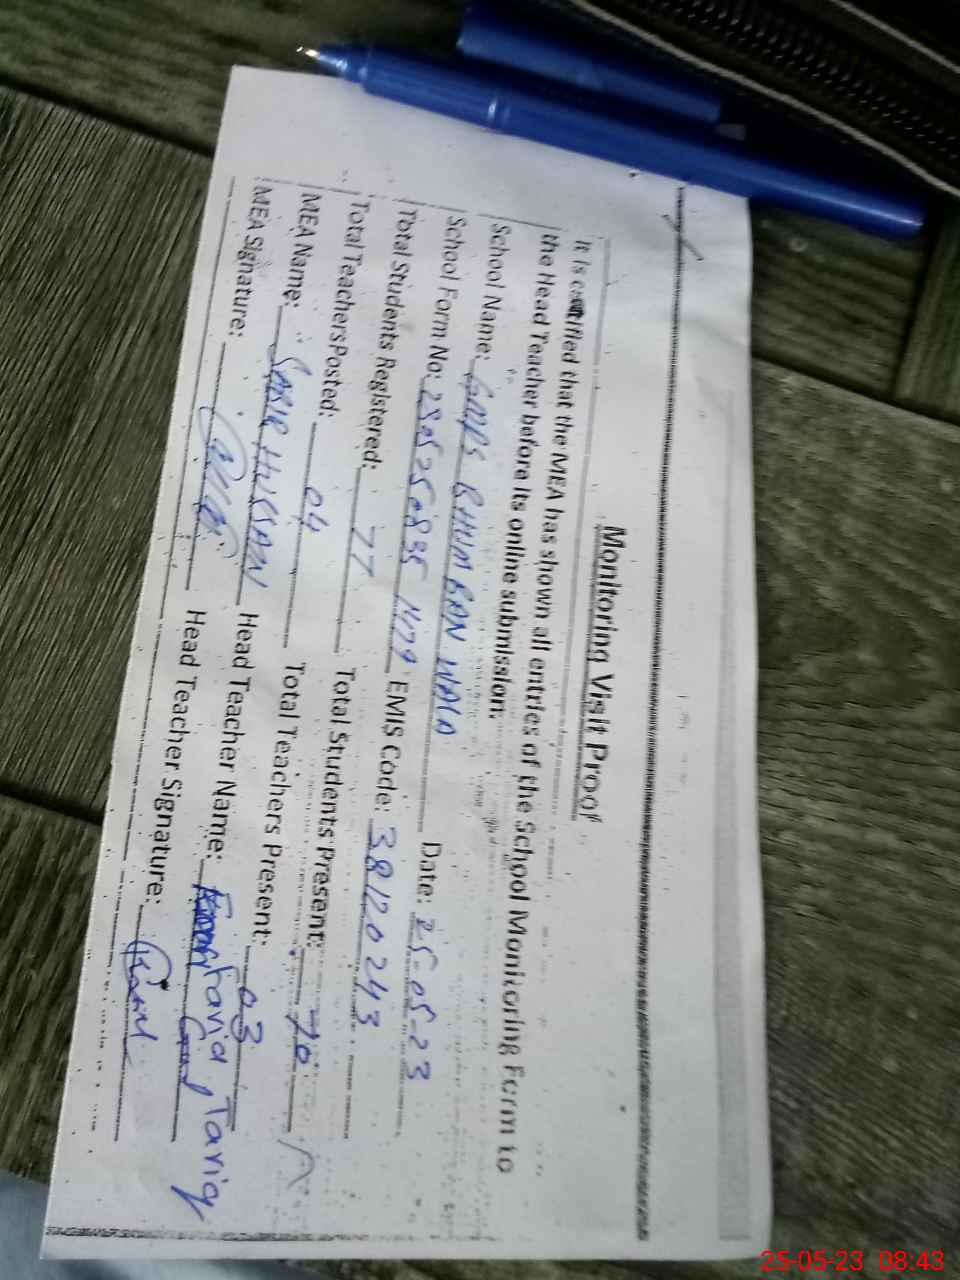 Monitoring Visit Proof
It is certified that the MEA has shown all entries of the School Monitoring Form to
the Head Teacher before its online submission.
School Name: GGPS BHUMBAN WALA Date: 25-05-23
School Form No: 2305250835 1479 EMIS Code: 38120243
Total Students Registered: 77 Total Students Present: 70
Total Teachers Posted: 04 Total Teachers Present: 03
MEA Name: SABIR HUSSAIN Head Teacher Name: Tariq
MEA Signature: Head Teacher Signature:
25-05-23 08:43